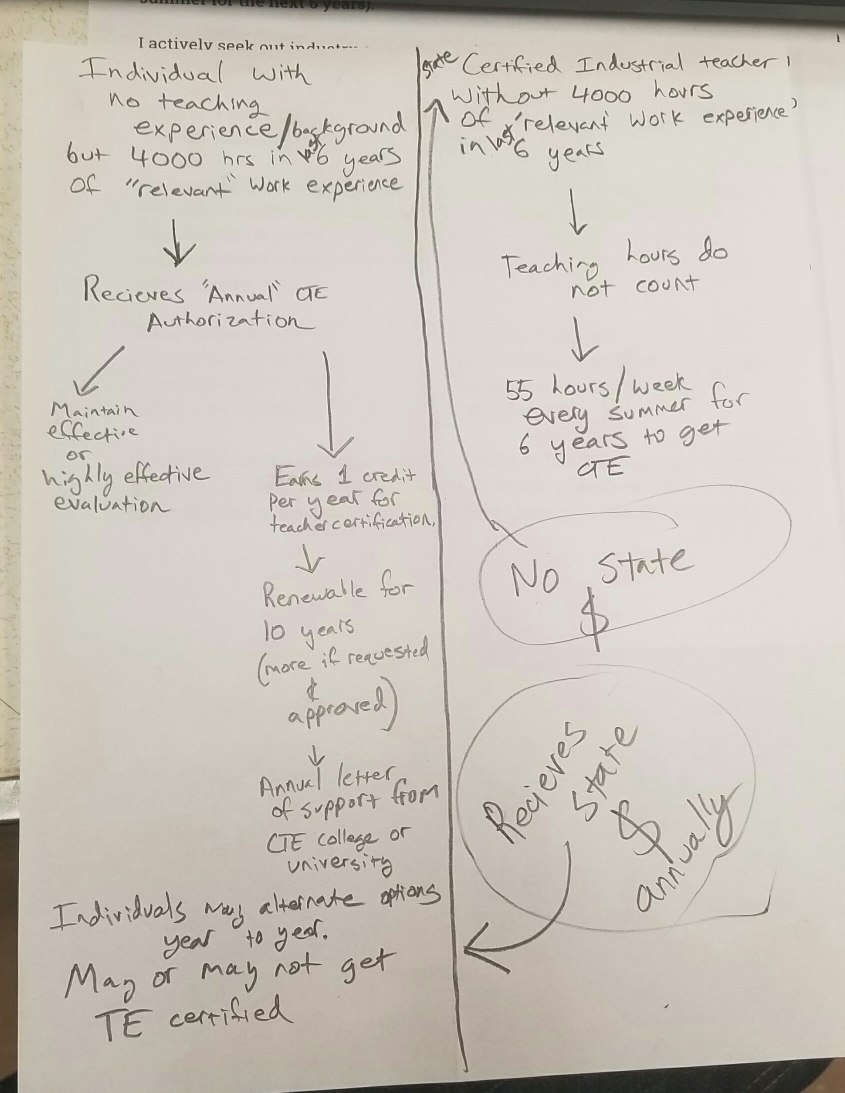 summer for the next 6 years).
I actively seek out
Individual with
no teaching
experience/background
but 4000 hrs in last 6 years
of "relevant" work experience
Recieves "Annual" CTE
Authorization
Maintain
effective
or
highly effective
evaluation
Earns 1 credit
per year for
teacher certification.
Renewable for
10 years
(more if requested
&
approved)
Annual letter
of support from
CTE college or
university
Individuals may alternate options
year to year.
May or may not get
TE certified
State Certified Industrial teacher
without 4000 hours
of "relevant work experience"
in last 6 years
Teaching hours do
not count
55 hours/week
every summer for
6 years to get
CTE
No State
$
Recieves
State
$
annually